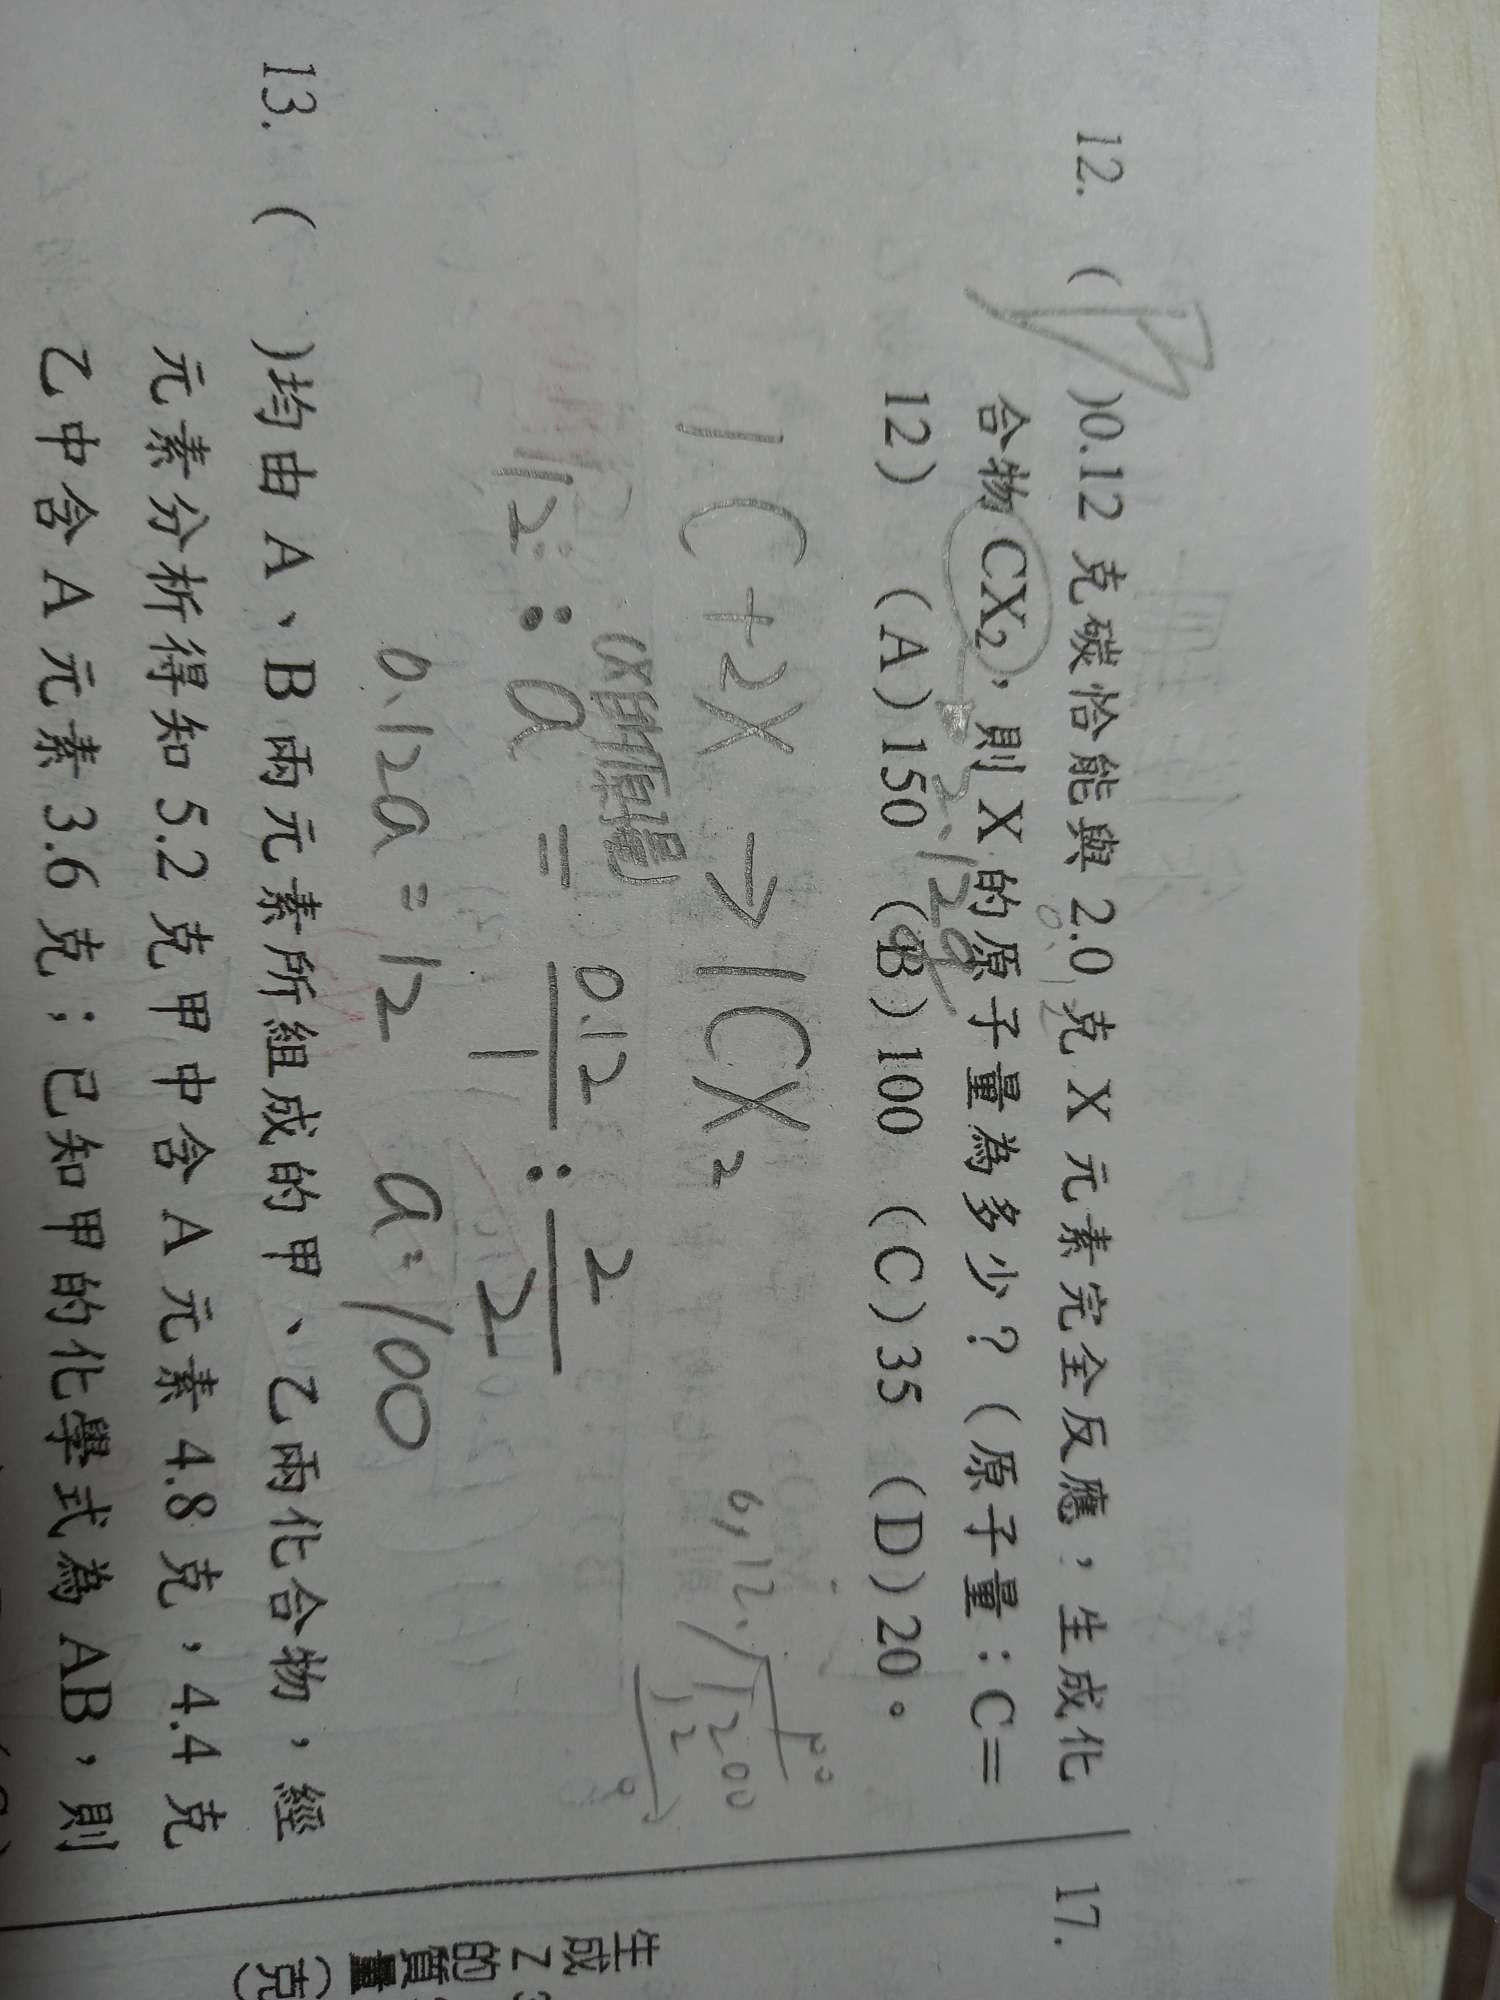 12. ( B )0.12 克碳恰能與 2.0 克 X 元素完全反應，生成化
合物 CX₂，則 X 的原子量為多少？（原子量：C=
12） (A)150 (B)100 (C)35 (D)20。
1C+2X → 1CX₂
12:a = 0.12/1 : 2/2
0.12a=12 a=100
0.12.√1200
12
0
13. ( )均由 A、B 兩元素所組成的甲、乙兩化合物，經
元素分析得知 5.2 克甲中含 A 元素 4.8 克，4.4 克
乙中含 A 元素 3.6 克；已知甲的化學式為 AB，則
17.
生成
Z
的質量
(克)